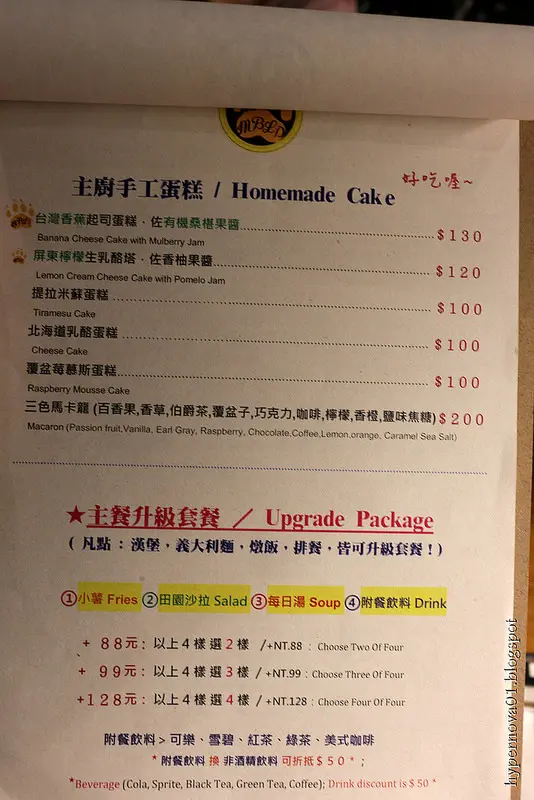 MBLD
主廚手工蛋糕 / Homemade Cake
好吃喔~
台灣香蕉起司蛋糕．佐有機桑椹果醬 $130
Banana Cheese Cake with Mulberry Jam
屏東檸檬生乳酪塔．佐香柚果醬 $120
Lemon Cream Cheese Cake with Pomelo Jam
提拉米蘇蛋糕 $100
Tiramesu Cake
北海道乳酪蛋糕 $100
Cheese Cake
覆盆莓慕斯蛋糕 $100
Raspberry Mousse Cake
三色馬卡龍 (百香果,香草,伯爵茶,覆盆子,巧克力,咖啡,檸檬,香橙,鹽味焦糖) $200
Macaron (Passion fruit,Vanilla, Earl Gray, Raspberry, Chocolate,Coffee,Lemon,orange, Caramel Sea Salt)
★主餐升級套餐 ／ Upgrade Package
( 凡點：漢堡，義大利麵，燉飯，排餐，皆可升級套餐！)
①小薯 Fries ②田園沙拉 Salad ③每日湯 Soup ④附餐飲料 Drink
+ 88元：以上4樣選2樣 /+NT.88：Choose Two Of Four
+ 99元：以上4樣選3樣 /+NT.99：Choose Three Of Four
+128元：以上4樣選4樣 /+NT.128：Choose Four Of Four
附餐飲料 > 可樂、雪碧、紅茶、綠茶、美式咖啡
* 附餐飲料 換 非酒精飲料 可折抵$50*；
*Beverage (Cola, Sprite, Black Tea, Green Tea, Coffee); Drink discount is $50 *
hypernova01.blogspot